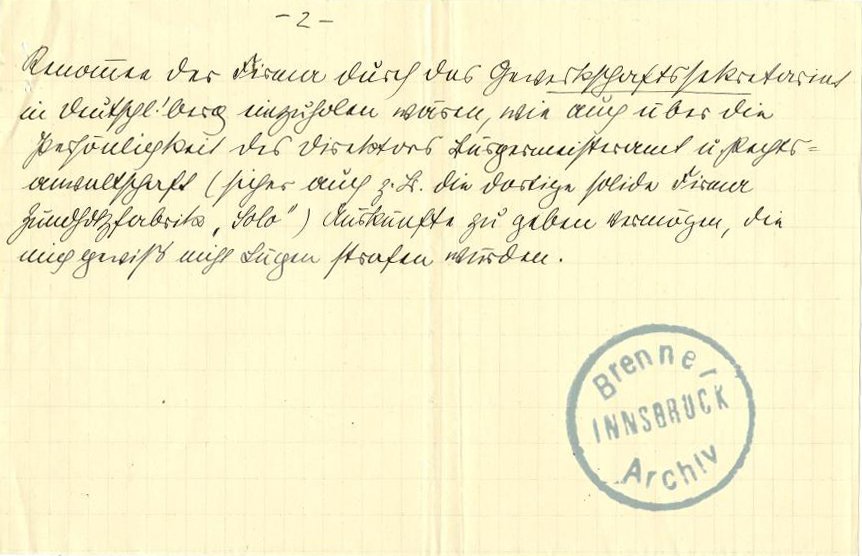 – 2 –
Renommee der Firma durch das Gewerkschaftssekretariat
in Deutschl'berg einzuholen wären, wie auch über die
Persönlichkeit des Direktors Bürgermeisteramt u. Rechts=
anwaltschaft (sicher auch z. B. die dortige solide Firma
Zündholzfabrik „Solo") Auskünfte zu geben vermögen, die
mich gewiß nicht Lügen strafen würden.
Brenner
INNSBRUCK
Archiv